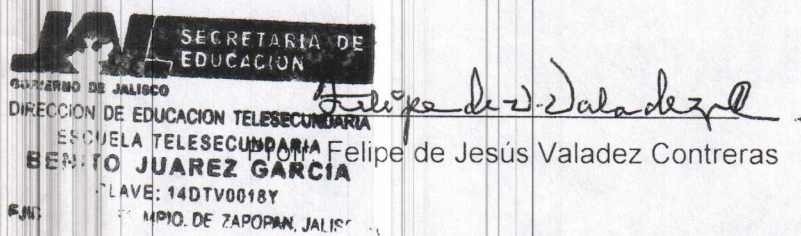 JAL
SECRETARIA DE
EDUCACION
GOBIERNO DE JALISCO
DIRECCION DE EDUCACION TELESECUNDARIA
ESCUELA TELESECUNDARIA
BENITO JUAREZ GARCIA
CLAVE: 14DTV0018Y
MPIO. DE ZAPOPAN, JALISCO
Felipe de J. Valadez
Profr. Felipe de Jesús Valadez Contreras